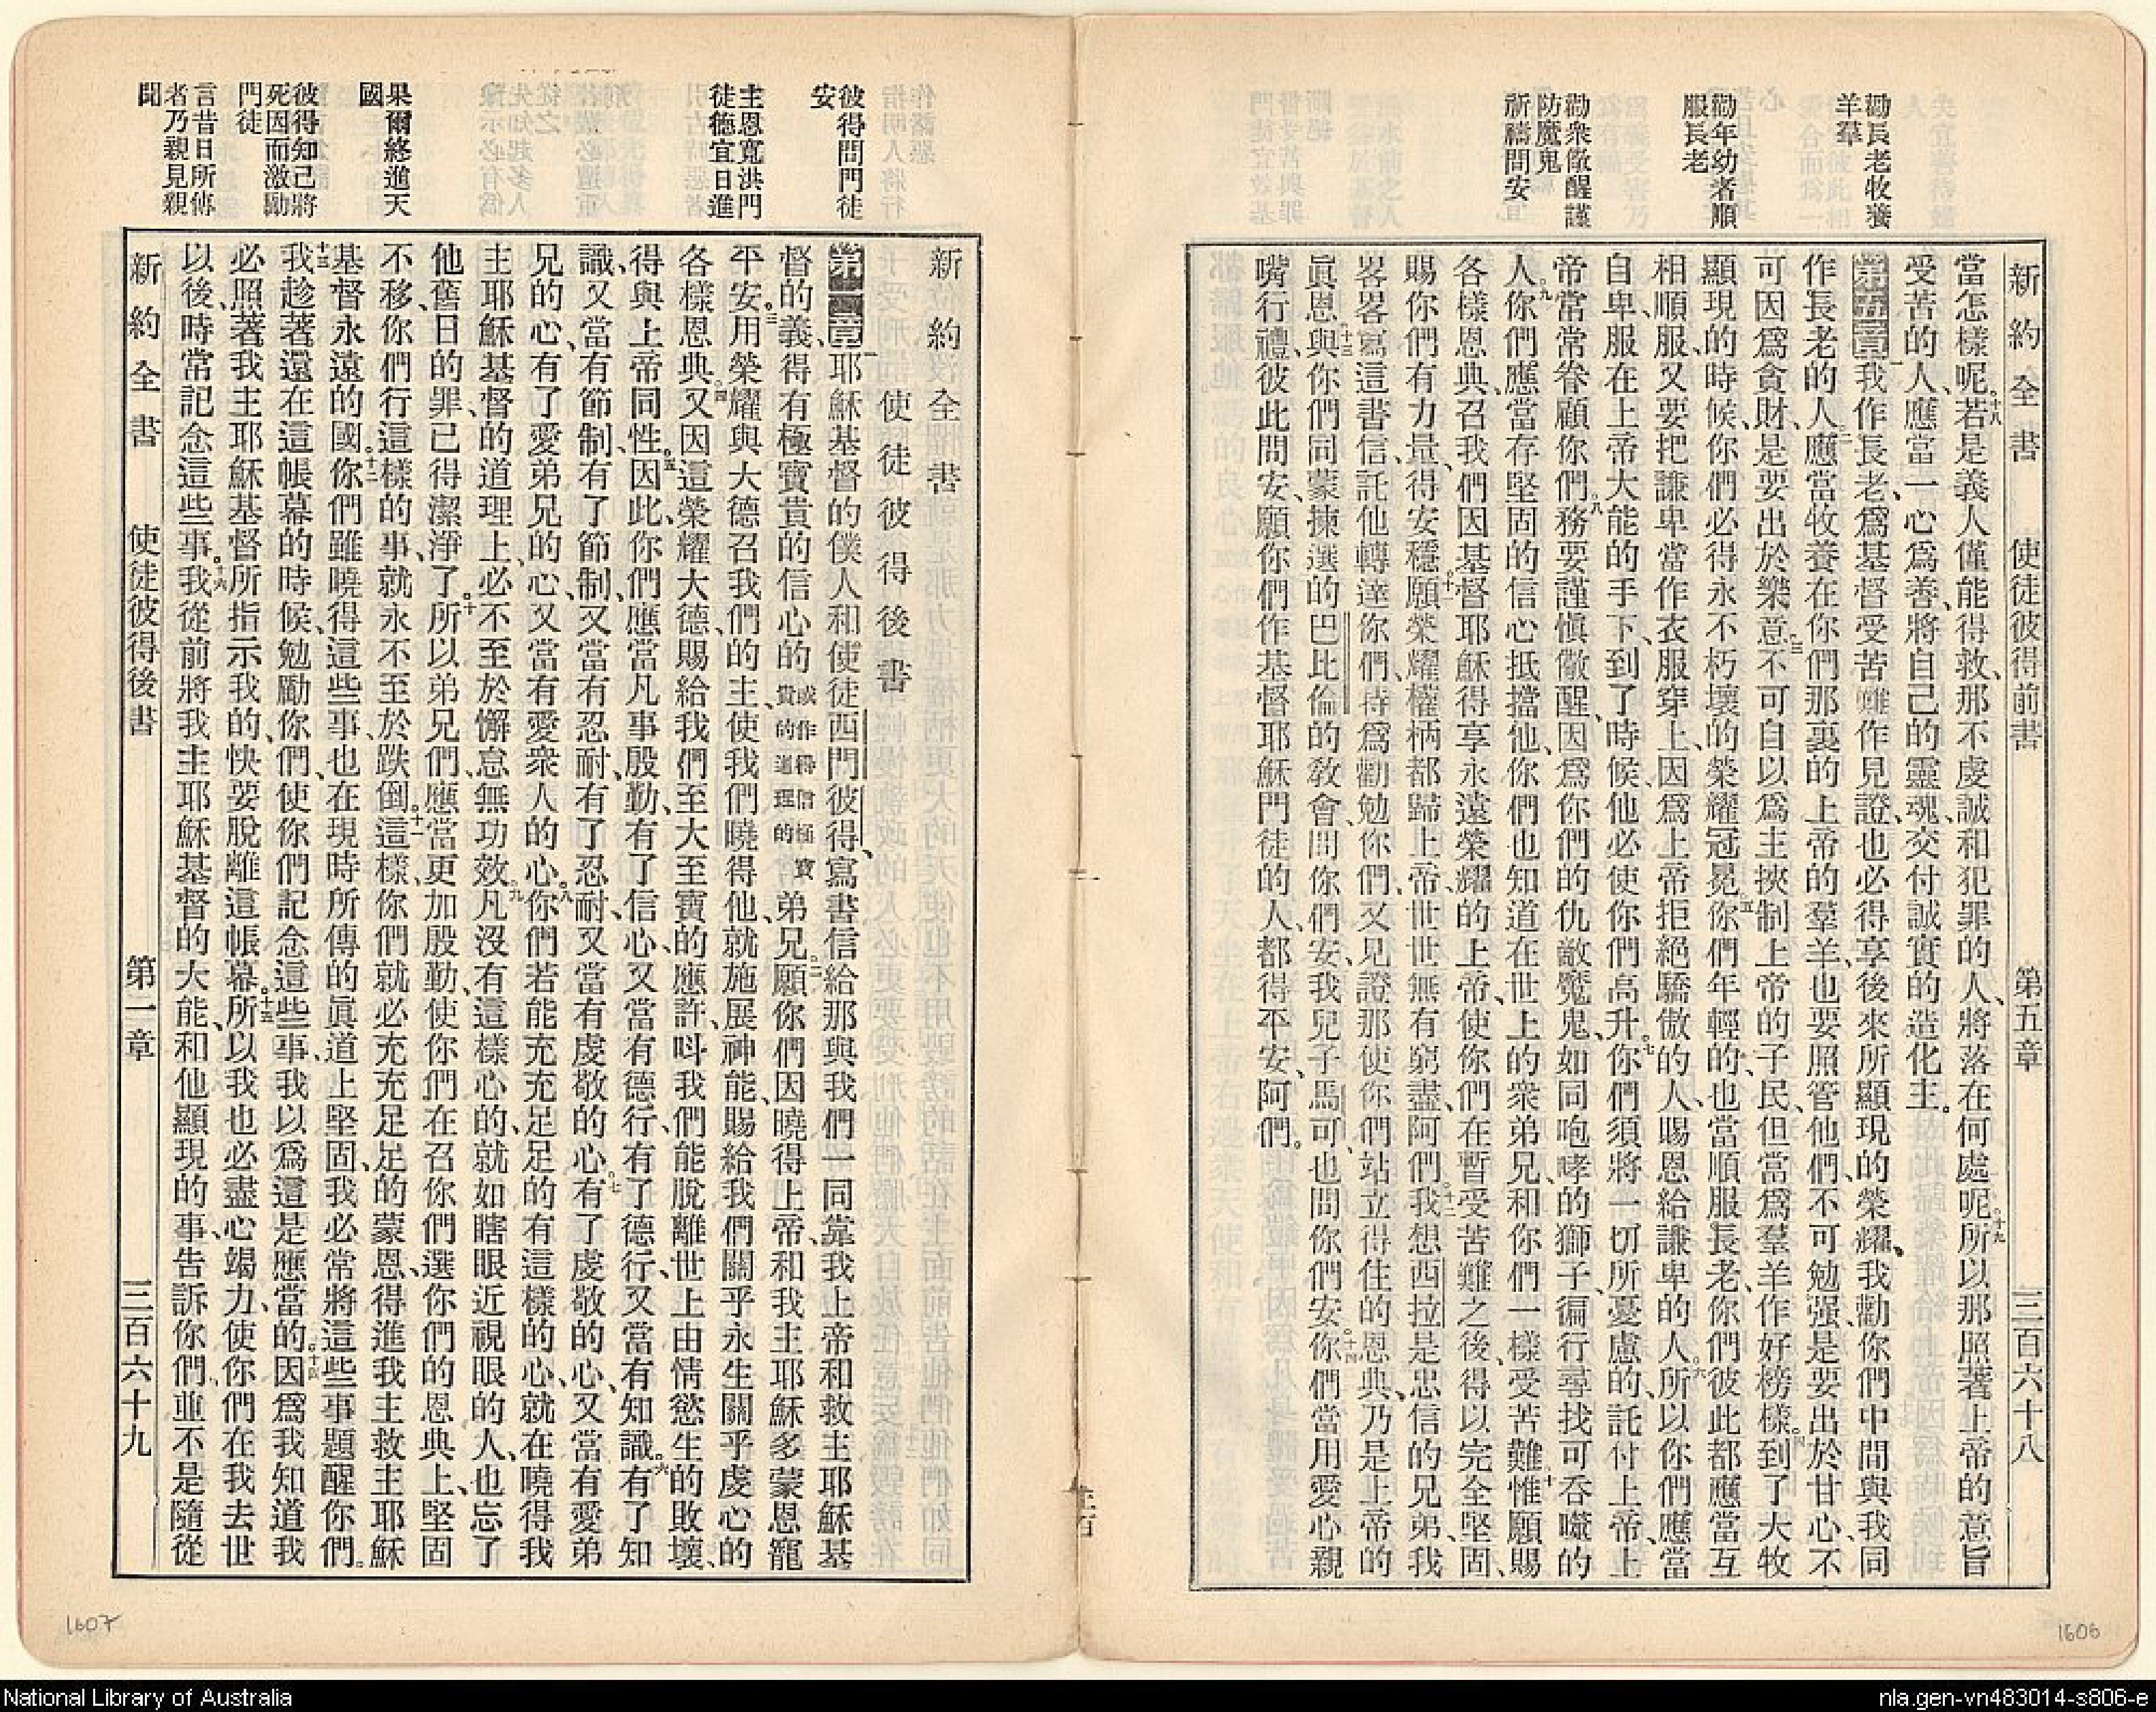 勸長老牧養
羊羣
勸年幼者順
服長老
勸衆儆醒謹
防魔鬼
祈禱問安
新約全書 使徒彼得前書 第五章 三百六十八
當怎樣呢。十八若是義人僅能得救、那不虔誠和犯罪的人、將落在何處呢。十九所以那照著上帝的意旨
受苦的人、應當一心爲善、將自己的靈魂、交付誠實的造化主。
第五章一我作長老、爲基督受苦難作見證、也必得享後來所顯現的榮耀、我勸你們中間與我同
作長老的人、二應當牧養在你們那裏的上帝的羣羊、也要照管他們、不可勉强、是要出於甘心、不
可因爲貪財、是要出於樂意、三不可自以爲主、挾制上帝的子民、但當爲羣羊作好榜樣。四到了大牧
顯現的時候、你們必得永不朽壞的榮耀冠冕。五你們年輕的、也當順服長老、你們彼此都應當互
相順服、又要把謙卑當作衣服穿上、因爲上帝拒絕驕傲的人、賜恩給謙卑的人。六所以你們應當
自卑、服在上帝大能的手下、到了時候、他必使你們高升。七你們須將一切所憂慮的、託付上帝、上
帝常常眷顧你們。八務要謹慎儆醒、因爲你們的仇敵魔鬼、如同咆哮的獅子、徧行尋找可吞噬的
人。九你們應當存堅固的信心抵擋他、你們也知道在世上的衆弟兄、和你們一樣受苦難、十惟願賜
各樣恩典、召我們因基督耶穌得享永遠榮耀的上帝、使你們在暫受苦難之後、得以完全堅固、
賜你們有力量、得安穩。十一願榮耀權柄都歸上帝、世世無有窮盡、阿們。十二我想西拉是忠信的兄弟、我
畧畧寫這書信、託他轉達你們、特爲勸勉你們、又見證那使你們站立得住的恩典、乃是上帝的
眞恩。十三與你們同蒙揀選的巴比倫的敎會、問你們安、我兒子馬可、也問你們安。十四你們當用愛心親
嘴行禮、彼此問安、願你們作基督耶穌門徒的人、都得平安、阿們。
彼得問門徒
安
主恩寬洪門
徒德宜日進
果爾終進天
國
彼得知己將
死因而激勵
門徒
言昔日所傳
者乃親見親
聞
新約全書
使徒彼得後書
第一章一耶穌基督的僕人和使徒西門彼得、寫書信給那與我們一同靠我上帝和救主耶穌基
督的義、得有極寶貴的信心的或作得信極寶貴的道理的弟兄。二願你們因曉得上帝、和我主耶穌、多蒙恩寵
平安。三用榮耀與大德召我們的主、使我們曉得他、就施展神能、賜給我們關乎永生關乎虔心的
各樣恩典。四又因這榮耀大德、賜給我們至大至寶的應許、呌我們能脫離世上由情慾生的敗壞、
得與上帝同性。五因此你們應當凡事殷勤、有了信心、又當有德行、有了德行、又當有知識。六有了知
識、又當有節制、有了節制、又當有忍耐、有了忍耐、又當有虔敬的心。七有了虔敬的心、又當有愛弟
兄的心、有了愛弟兄的心、又當有愛衆人的心。八你們若能充充足足的有這樣的心、就在曉得我
主耶穌基督的道理上、必不至於懈怠無功效。九凡沒有這樣心的、就如瞎眼近視眼的人、也忘了
他舊日的罪、已得潔淨了。十所以弟兄們、應當更加殷勤、使你們在召你們選你們的恩典上堅固
不移、你們行這樣的事、就永不至於跌倒。十一這樣、你們就必充充足足的蒙恩、得進我主救主耶穌
基督永遠的國。十二你們雖曉得這些事、也在現時所傳的眞道上堅固、我必常將這些事題醒你們。
十三我趁著還在這帳幕的時候、勉勵你們、使你們記念這些事、我以爲這是應當的。十四因爲我知道我
必照著我主耶穌基督所指示我的、快要脫離這帳幕。十五所以我也必盡心竭力、使你們在我去世
以後、時常記念這些事。十六我從前將我主耶穌基督的大能、和他顯現的事、告訴你們、並不是隨從
新約全書 使徒彼得後書 第一章 三百六十九
1607
1606
National Library of Australia
nla.gen-vn483014-s806-e